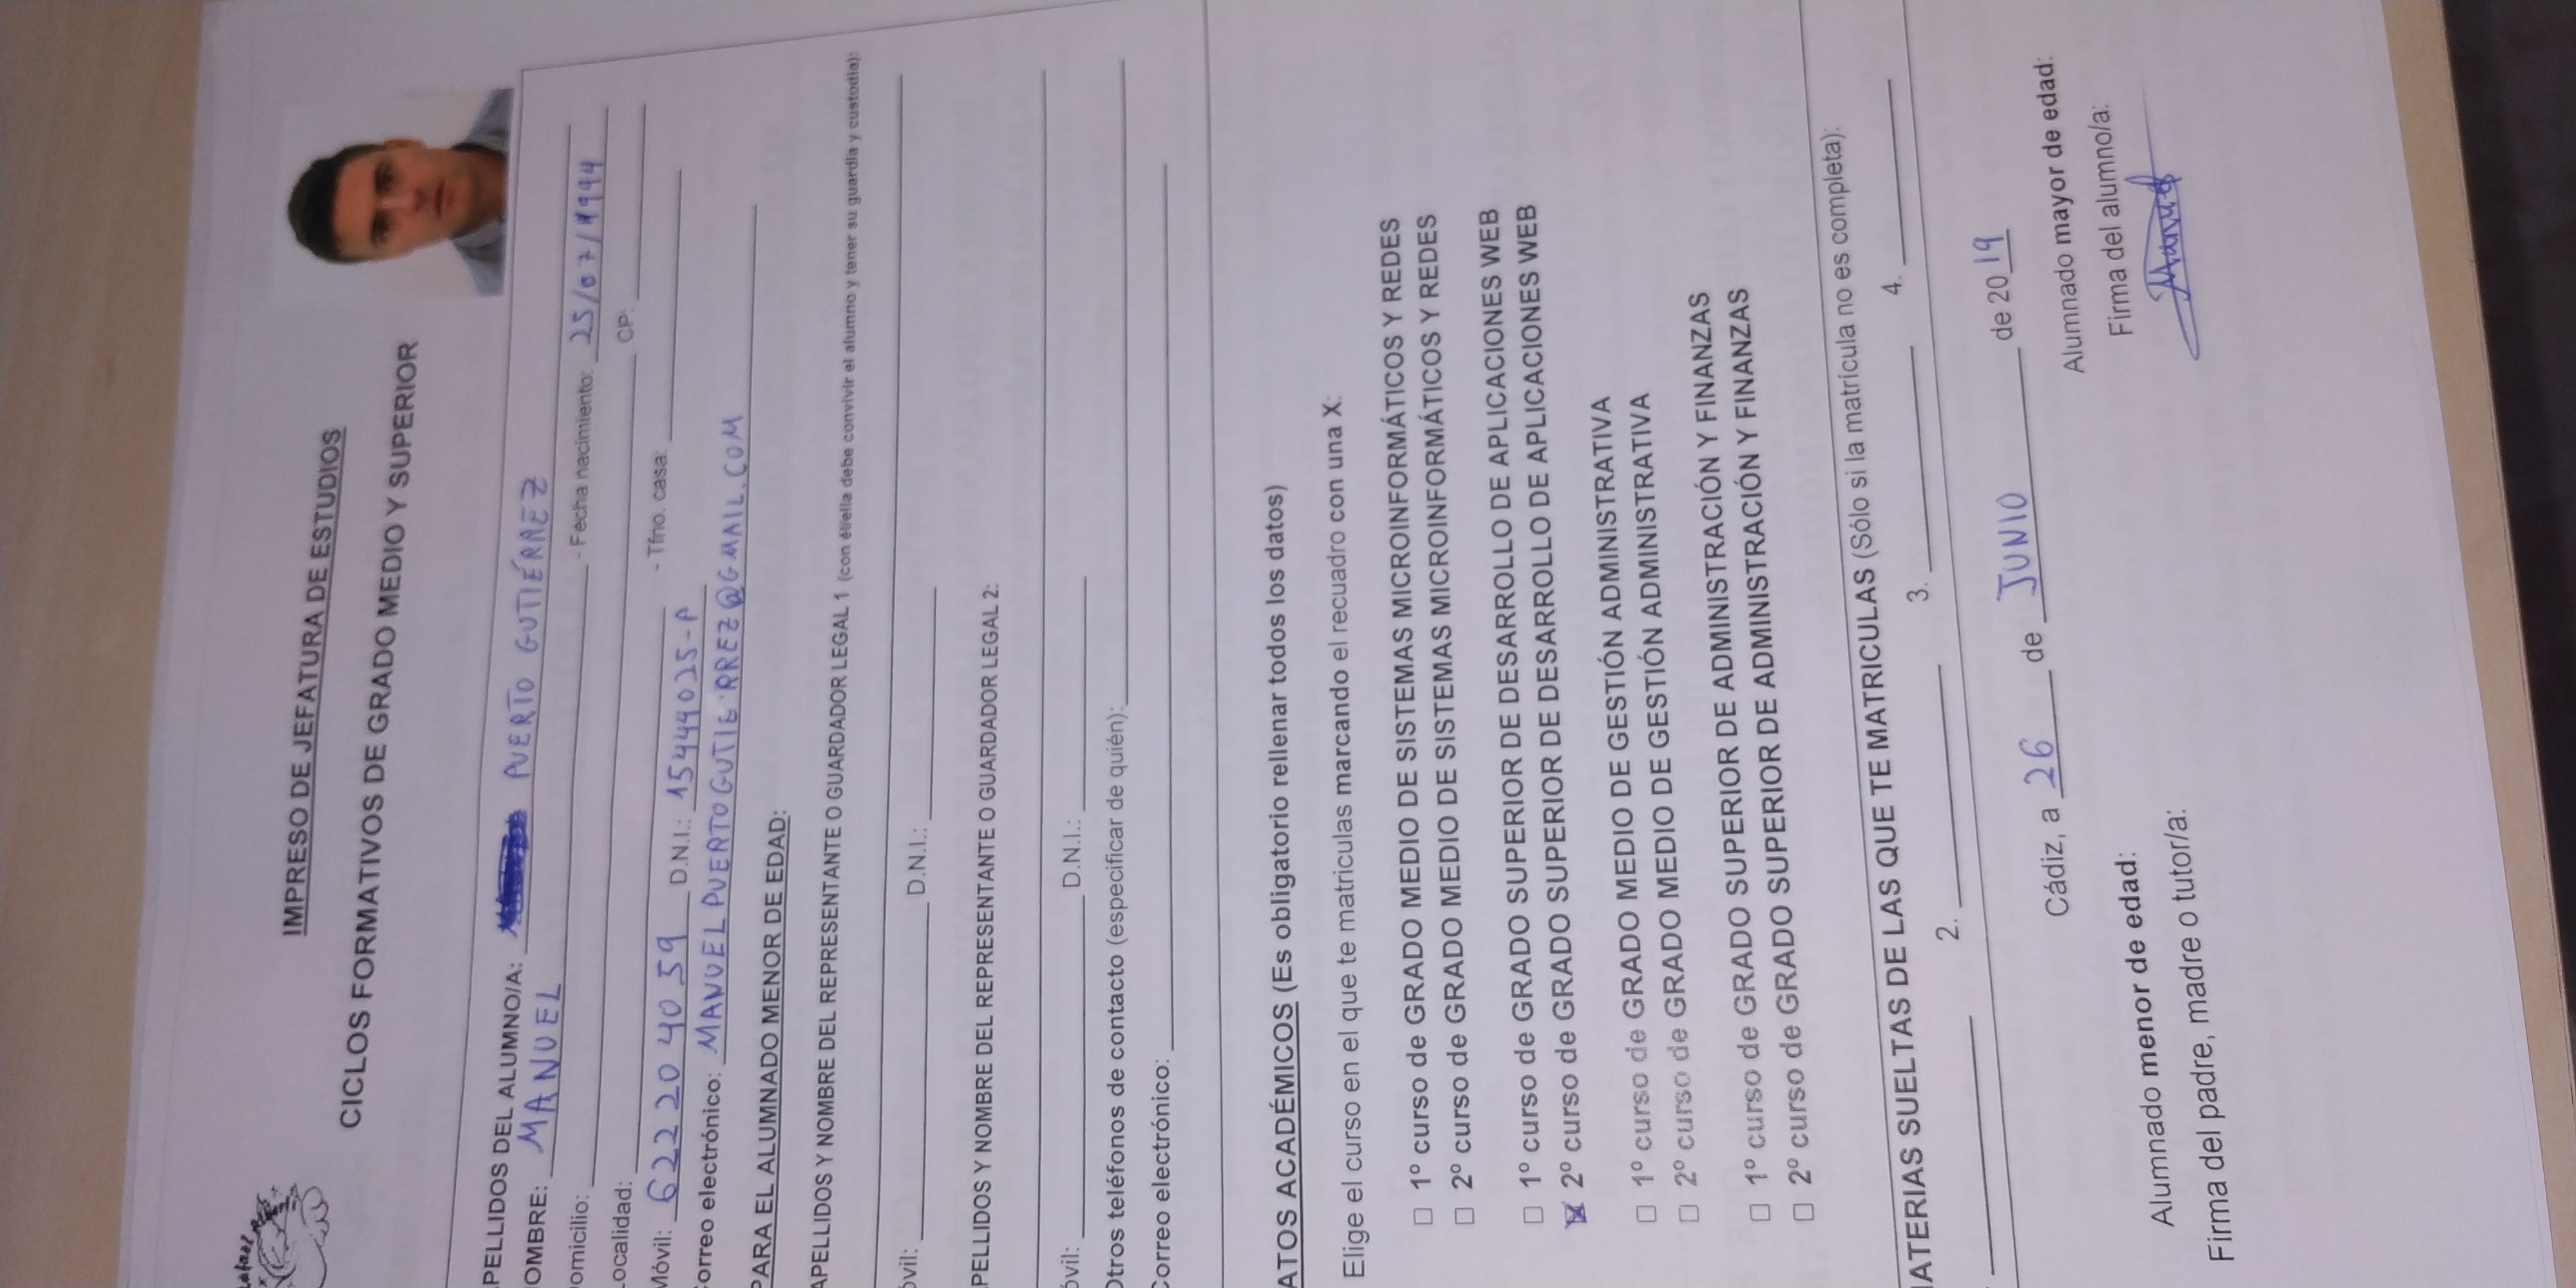 Rafael Alberti
IMPRESO DE JEFATURA DE ESTUDIOS
CICLOS FORMATIVOS DE GRADO MEDIO Y SUPERIOR
PELLIDOS DEL ALUMNO/A: PUERTO GUTIÉRREZ
OMBRE: MANUEL
omicilio: - Fecha nacimiento: 25/07/1994
Localidad: CP:
Móvil: 622 20 40 59 D.N.I.: 15444025-P - Tfno. casa:
Correo electrónico: MANUELPUERTOGUTIERREZ@GMAIL.COM
PARA EL ALUMNADO MENOR DE EDAD:
APELLIDOS Y NOMBRE DEL REPRESENTANTE O GUARDADOR LEGAL 1 (con él/ella debe convivir el alumno y tener su guardia y custodia):
óvil: D.N.I.:
PELLIDOS Y NOMBRE DEL REPRESENTANTE O GUARDADOR LEGAL 2:
óvil: D.N.I.:
Otros teléfonos de contacto (especificar de quién):
Correo electrónico:
ATOS ACADÉMICOS (Es obligatorio rellenar todos los datos)
Elige el curso en el que te matriculas marcando el recuadro con una X:
1º curso de GRADO MEDIO DE SISTEMAS MICROINFORMÁTICOS Y REDES
2º curso de GRADO MEDIO DE SISTEMAS MICROINFORMÁTICOS Y REDES
1º curso de GRADO SUPERIOR DE DESARROLLO DE APLICACIONES WEB
X 2º curso de GRADO SUPERIOR DE DESARROLLO DE APLICACIONES WEB
1º curso de GRADO MEDIO DE GESTIÓN ADMINISTRATIVA
2º curso de GRADO MEDIO DE GESTIÓN ADMINISTRATIVA
1º curso de GRADO SUPERIOR DE ADMINISTRACIÓN Y FINANZAS
2º curso de GRADO SUPERIOR DE ADMINISTRACIÓN Y FINANZAS
MATERIAS SUELTAS DE LAS QUE TE MATRICULAS (Sólo si la matrícula no es completa):
2. 3. 4.
Cádiz, a 26 de JUNIO de 2019
Alumnado mayor de edad:
Firma del alumno/a:
Manuel
Alumnado menor de edad:
Firma del padre, madre o tutor/a: